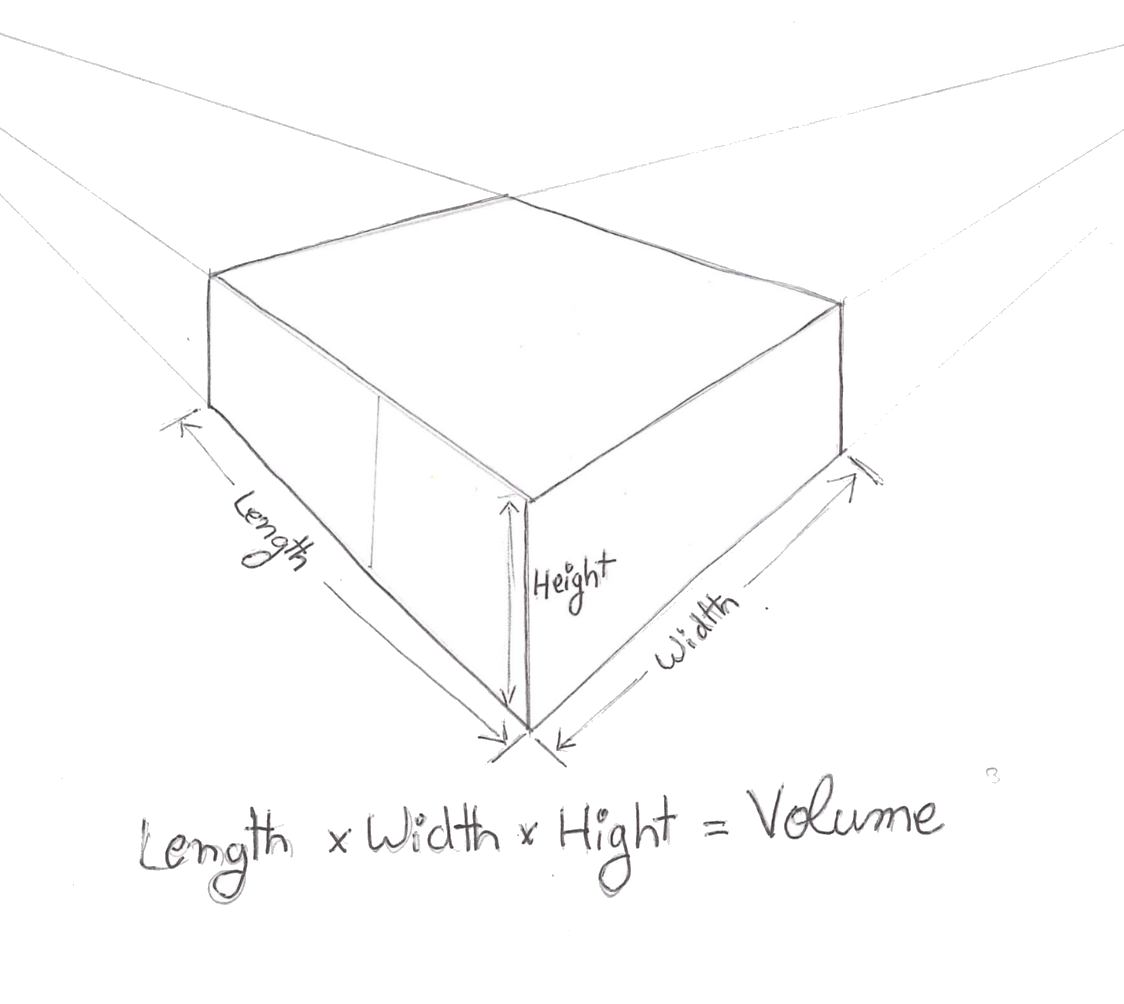 Length
Height
Width
Length x Width x Hight = Volume ³